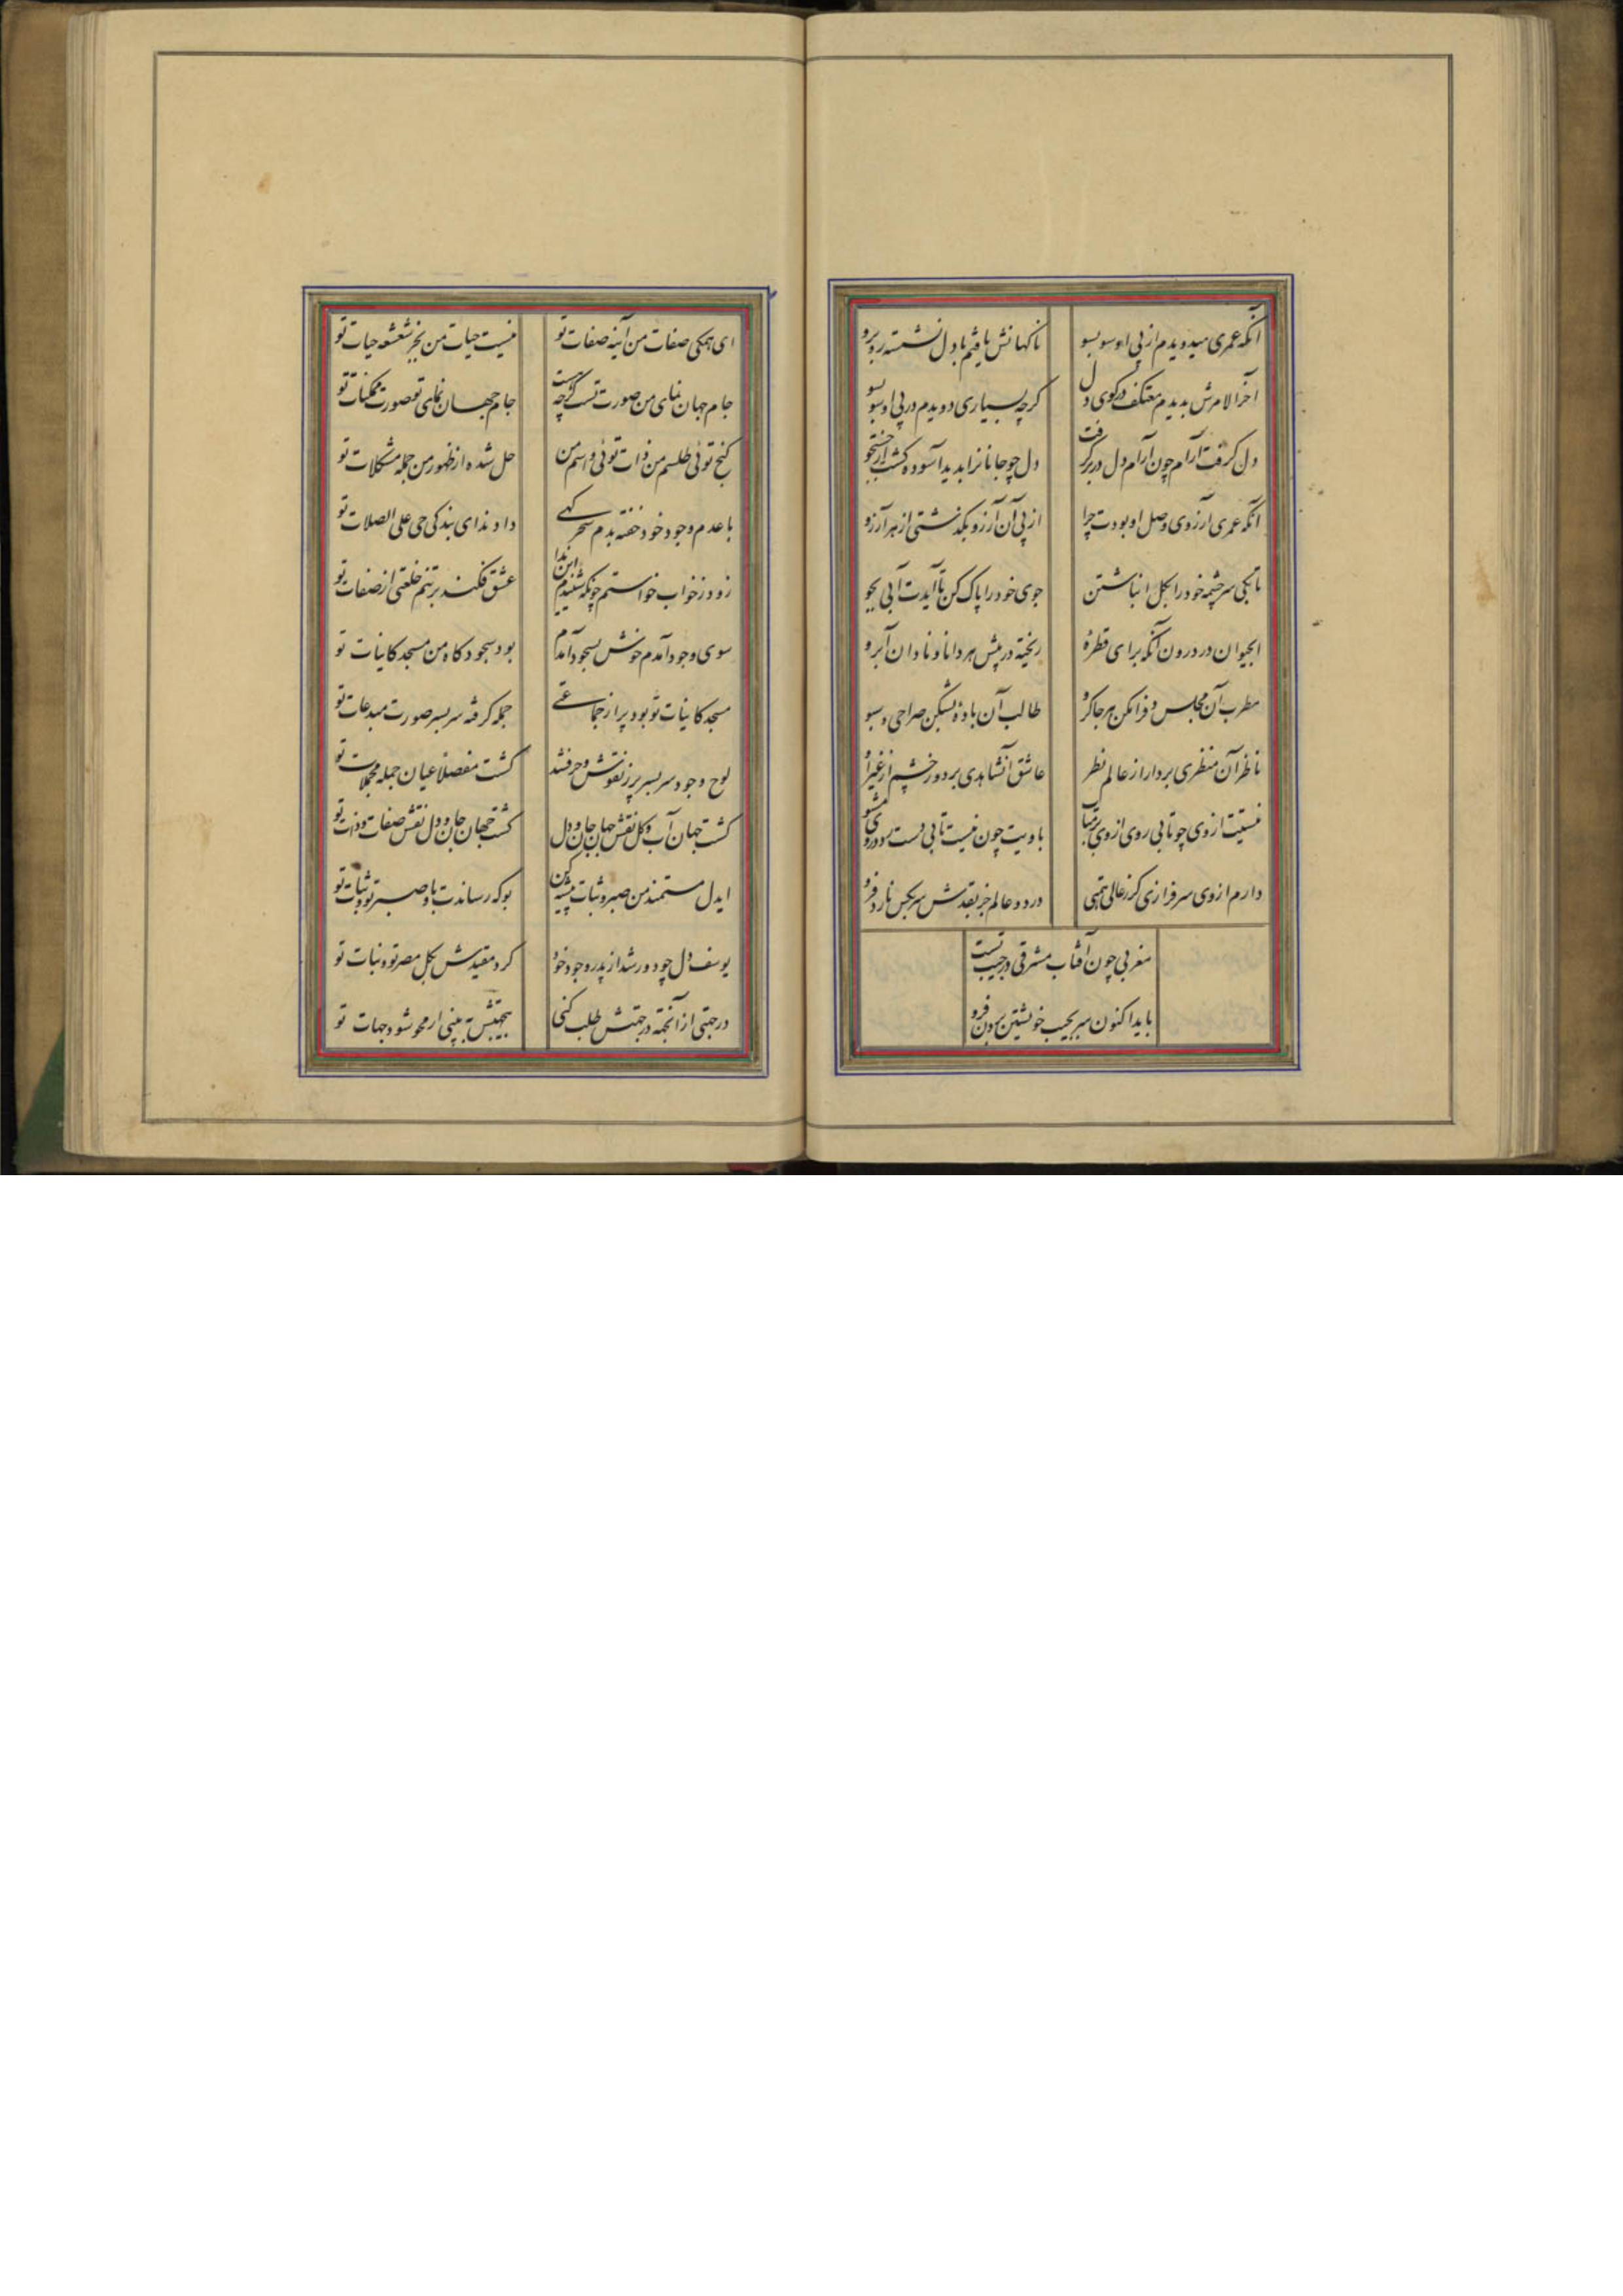 آنکه عمری میدویدم از پی او سو بسو
ناکهانش یافتم با دل نشسته روبرو
آخر الامرش بدیدم معتکف در کوی دل
کرچه بسیاری دویدم در پی او سو بسو
دل کرفت آرام چون آرام دل در بر کرفت
دل چو جانانرا بدید آسوده کشت از جستجو
آنکه عمری آرزوی وصل او بودت چرا
از پی آن آرزو بکذشتی از هر آرزو
تا بکی سرچشمه خود را بکل انباشتن
جوی خود را پاک کن تا آیدت آبی بجو
ابحیوان در درون آنکه برای قطرهٔ
ریخته در پیش هر دانا و نادان آبرو
مطرب آن مجلسی دف را مکن هر جا کرو
طالب آن باده بشکن صراحی و سبو
ناظر آن منظری بردار از عالم نظر
عاشق آنشاهدی بردوز چشم از غیر او
نیستت از وی چو تابی روی از وی بر متاب
با ویت چون نیست تابی دست رو در وی مشو
دارم از وی سرفرازی کز عالی همتی
در دو عالم جز بقدش سر بکس نارد فرو
مغربی چون آفتاب مشرقی در جیب تست
باید اکنون سر بجیب خویشتن بردن فرو
ای همکی صفات من آینه صفات تو
نیست حیات من بجز شعشعه حیات تو
جام جهان نمای من صورت تست کرچه هست
جام جهان نمای تو صورت ممکنات تو
کنج توئی طلسم من ذات توئی و اسم من
حل شده از ظهور من جمله مشکلات تو
با عدم وجود خود خفته بدم سحر کهی
داد ندای بندکی حی علی الصلات تو
زود ز خواب خواستم چونکه شنیدم این ندا
عشق فکند بر تنم خلعتی از صفات تو
سوی وجود آمدم خوش بسجود آمدم
بود سجود کاه من مسجد کاینات تو
مسجد کاینات تو بود پر از جماعتی
جمله کرفته سر بسر صورت مبدعات تو
لوح وجود سر بسر پر ز نقوش و حرف شد
کشت مفصلا عیان جمله مجملات تو
کشت جهان آب و کل نقش جهان جان و دل
کشت جهان جان و دل نقش صفات و ذات تو
ایدل مستمند من صبر و ثبات پیشه کن
بو که رساندت باو صبر تو و ثبات تو
یوسف دل چو دور شد از پدر وجود خود
کرد مقیدش بکل مصر تو و نبات تو
در جهتی از آنجهة در جهتش طلب کنی
بیجهتش ببینی ار محو شود جهات تو